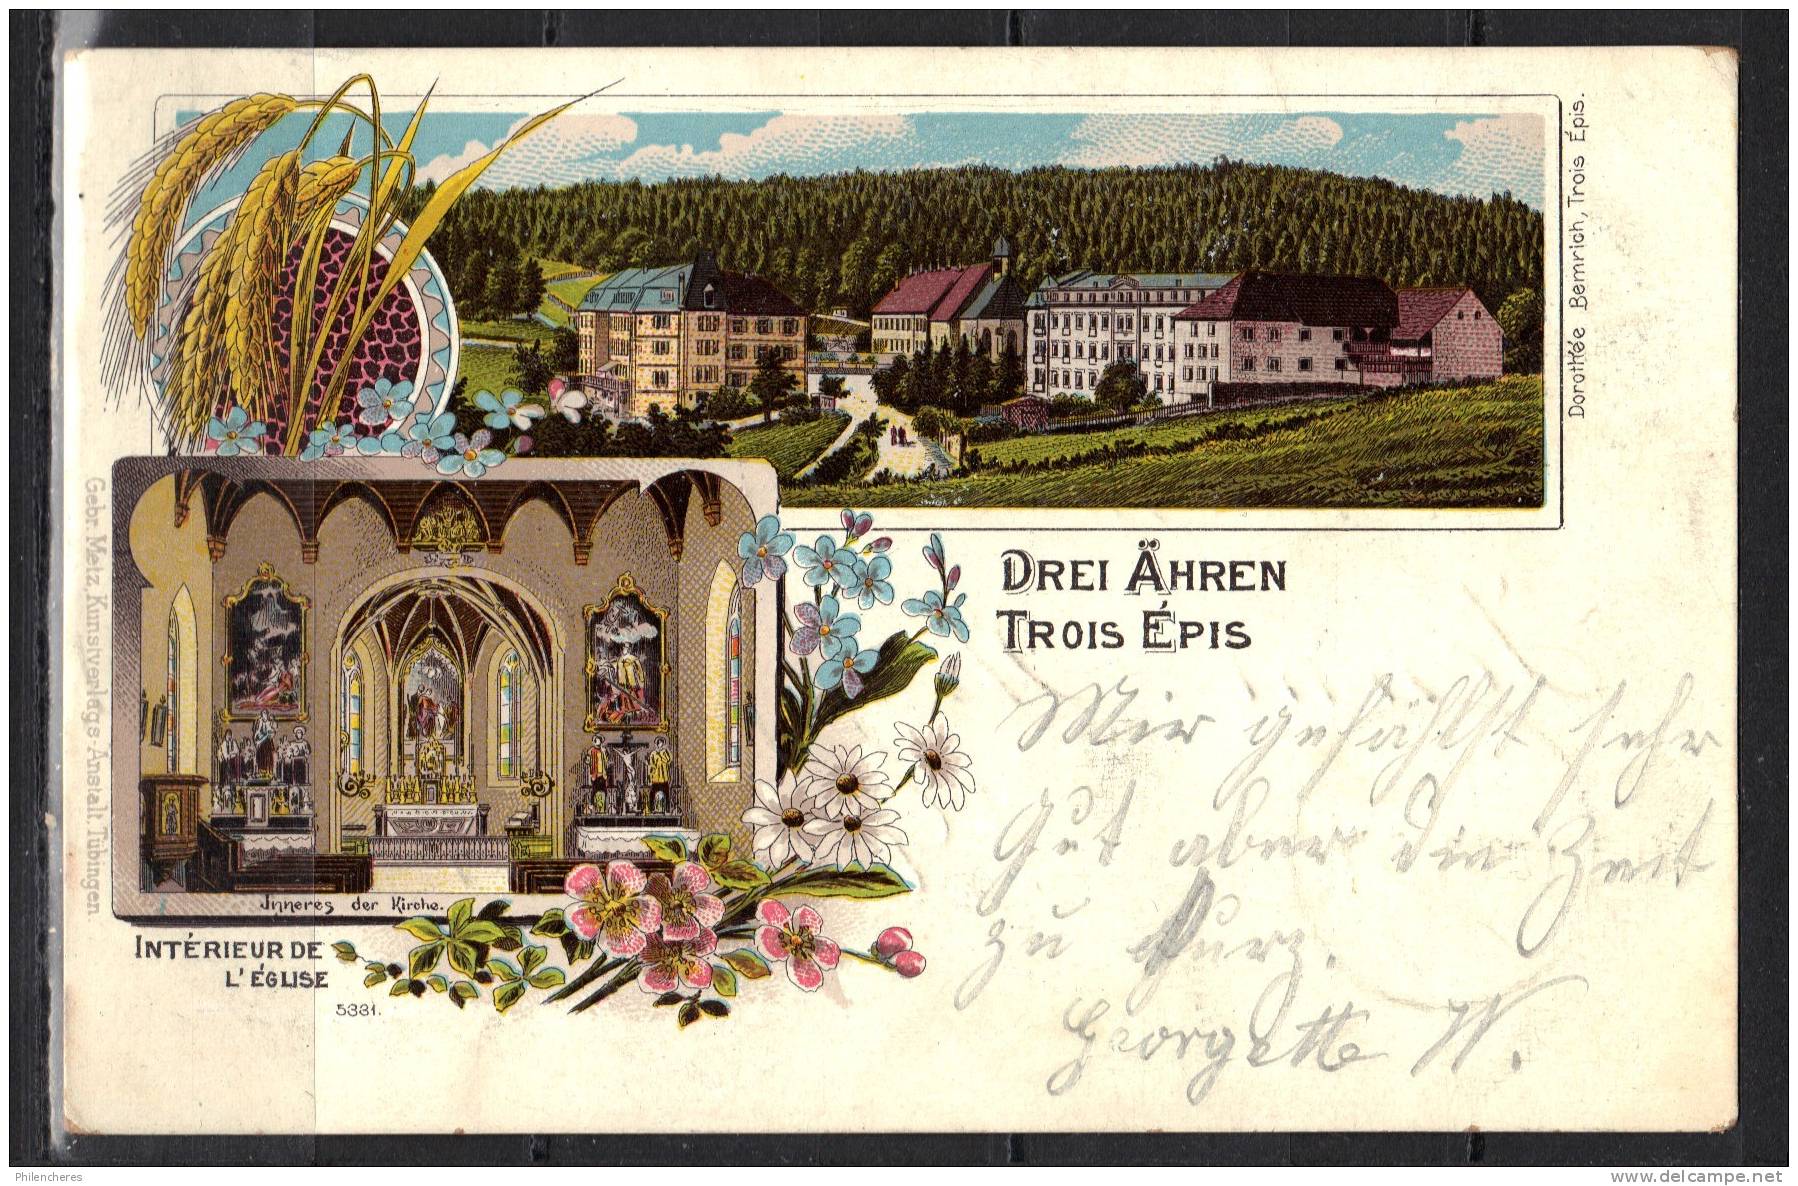 Dorothée Bemrich, Trois Épis.
DREI ÄHREN
TROIS ÉPIS
Mir gefählt sehr
Gut aber die Zeit
zu Kurz.
Georgette W.
Inneres der Kirche.
INTÉRIEUR DE
L'ÉGLISE
5331.
Gebr. Metz, Kunstverlags-Anstalt, Tübingen.
Philencheres
www.delcampe.net